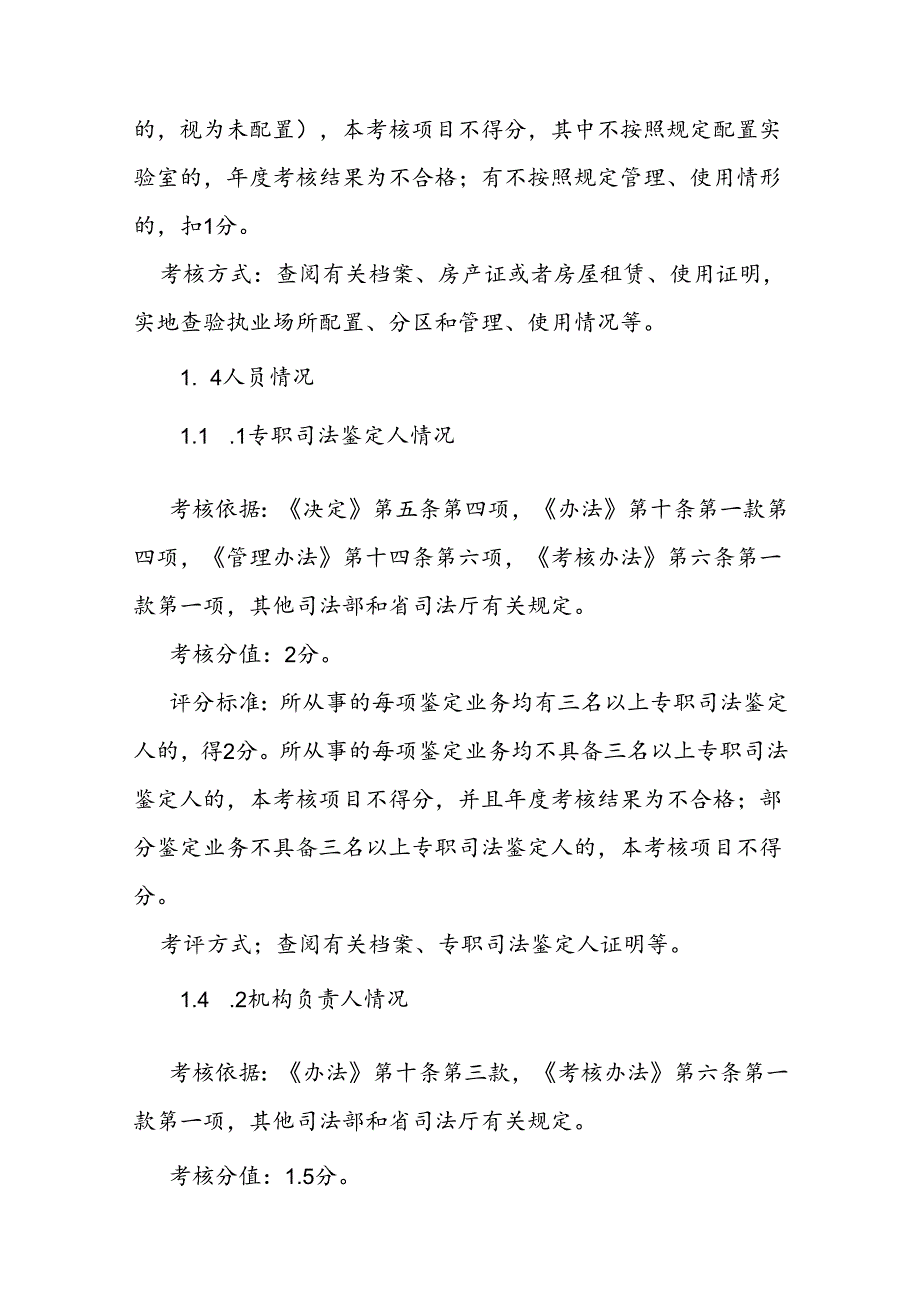 的，视为未配置），本考核项目不得分，其中不按照规定配置实
验室的，年度考核结果为不合格；有不按照规定管理、使用情形
的，扣1分。
考核方式：查阅有关档案、房产证或者房屋租赁、使用证明，
实地查验执业场所配置、分区和管理、使用情况等。
1. 4人员情况
1.1 .1专职司法鉴定人情况
考核依据：《决定》第五条第四项，《办法》第十条第一款第
四项，《管理办法》第十四条第六项，《考核办法》第六条第一
款第一项，其他司法部和省司法厅有关规定。
考核分值：2分。
评分标准：所从事的每项鉴定业务均有三名以上专职司法鉴定
人的，得2分。所从事的每项鉴定业务均不具备三名以上专职司法
鉴定人的，本考核项目不得分，并且年度考核结果为不合格；部
分鉴定业务不具备三名以上专职司法鉴定人的，本考核项目不得
分。
考评方式；查阅有关档案、专职司法鉴定人证明等。
1.4 .2机构负责人情况
考核依据：《办法》第十条第三款，《考核办法》第六条第一
款第一项，其他司法部和省司法厅有关规定。
考核分值：1.5分。